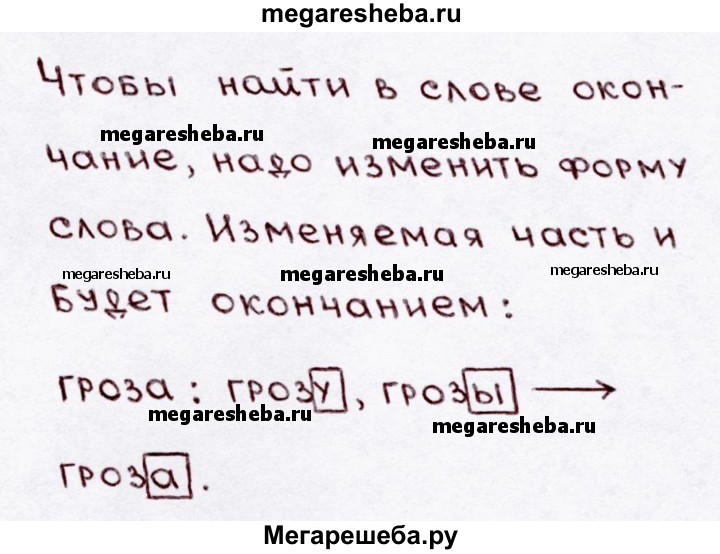 megaresheba.ru
Чтобы найти в слове окон-
megaresheba.ru megaresheba.ru
чание, надо изменить форму
слова. Изменяемая часть и
megaresheba.ru megaresheba.ru megaresheba.ru
будет окончанием:
гроза: грозу, грозы →
megaresheba.ru megaresheba.ru
гроза.
Мегарешеба.ру